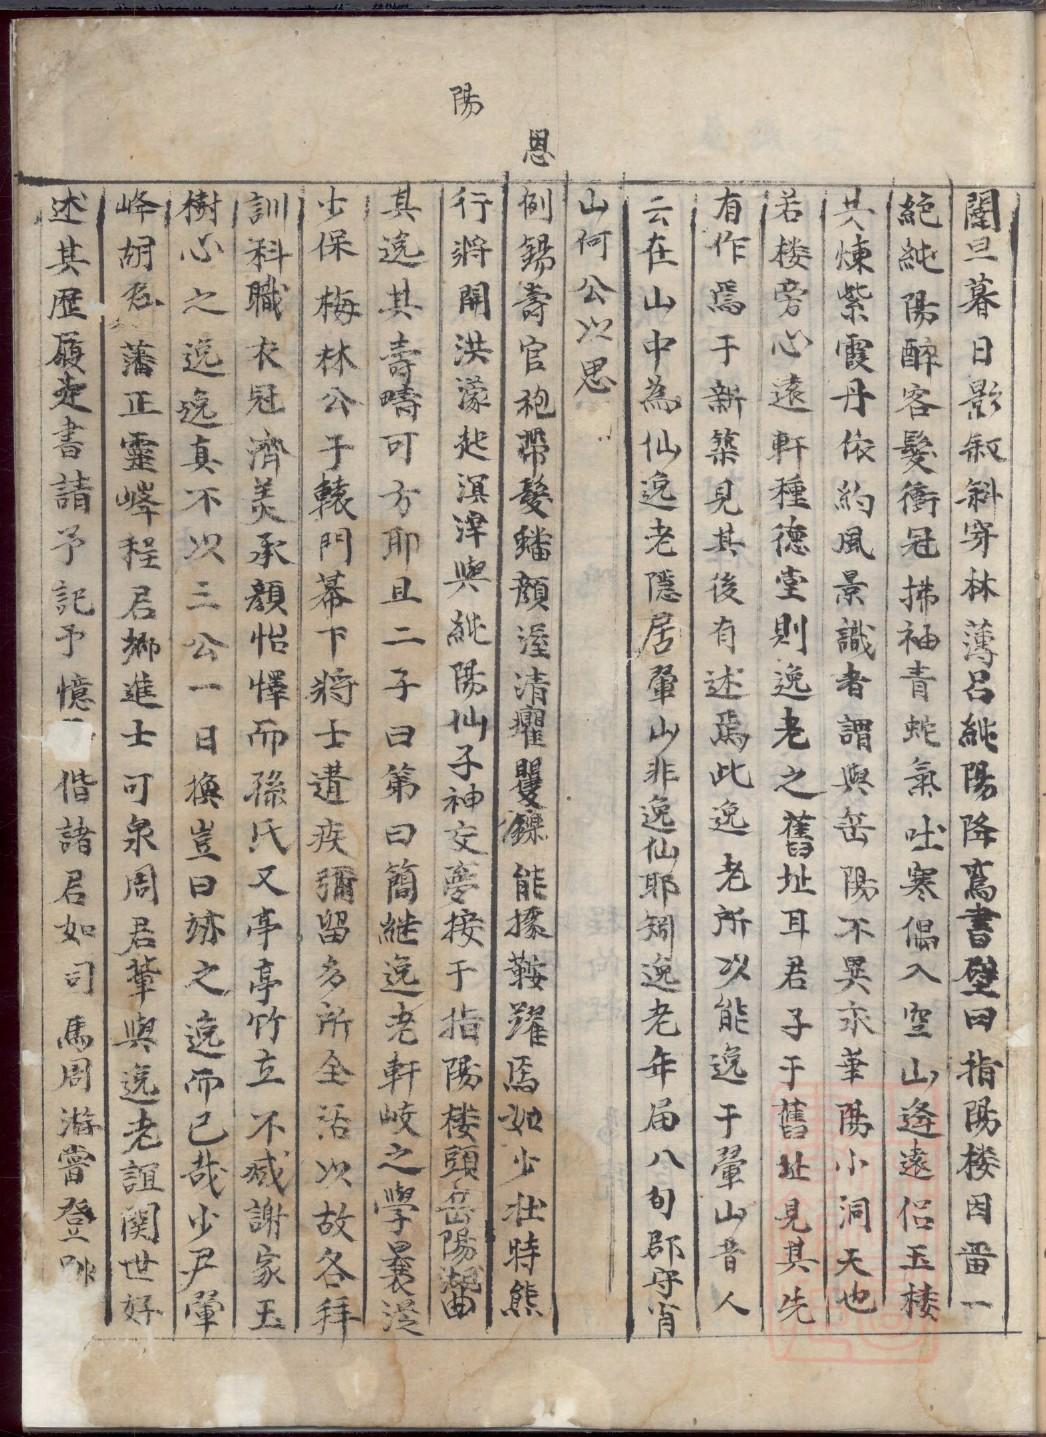 陽
恩
闈旦暮日影敍斜穿林薄呂純陽降鸞書壁曰指陽楼因畱一
絶純陽醉客髮衝冠拂袖青蛇氣吐寒偶入空山逢遠侶玉楼
共煉紫霞丹依約風景識者謂與岳陽不異亦華陽小洞天也
若楼旁心遠軒種德堂則逸老之舊址耳君子于舊址見其先
有作焉于新築見其後有述焉此逸老所以能逸于翬山昔人
云在山中為仙逸老隱居翬山非逸仙耶矧逸老年届八旬郡守肖
山何公以恩
例錫壽官袍帶髮皤顔渥清癯矍鑠能據鞍躍馬如少壯時熊
行將開洪濛超溟涬與純陽仙子神交夢接于指陽楼頭岳陽湖曲
其逸其壽疇可方耶且二子曰第曰簡継逸老軒岐之學曩從
少保梅林公于轅門幕下将士遘疾彌留多所全活以故各拜
訓科職衣冠濟美承顔怡懌而孫氏又亭亭竹立不減謝家玉
樹心之逸逸真不以三公一日換豈曰跡之逸而已哉少尹翬
峰胡君藩正靈峰程君鄉進士可泉周君輩與逸老誼関世好
述其歴履走書請予記予憶偕諸君如司馬周游嘗登眺